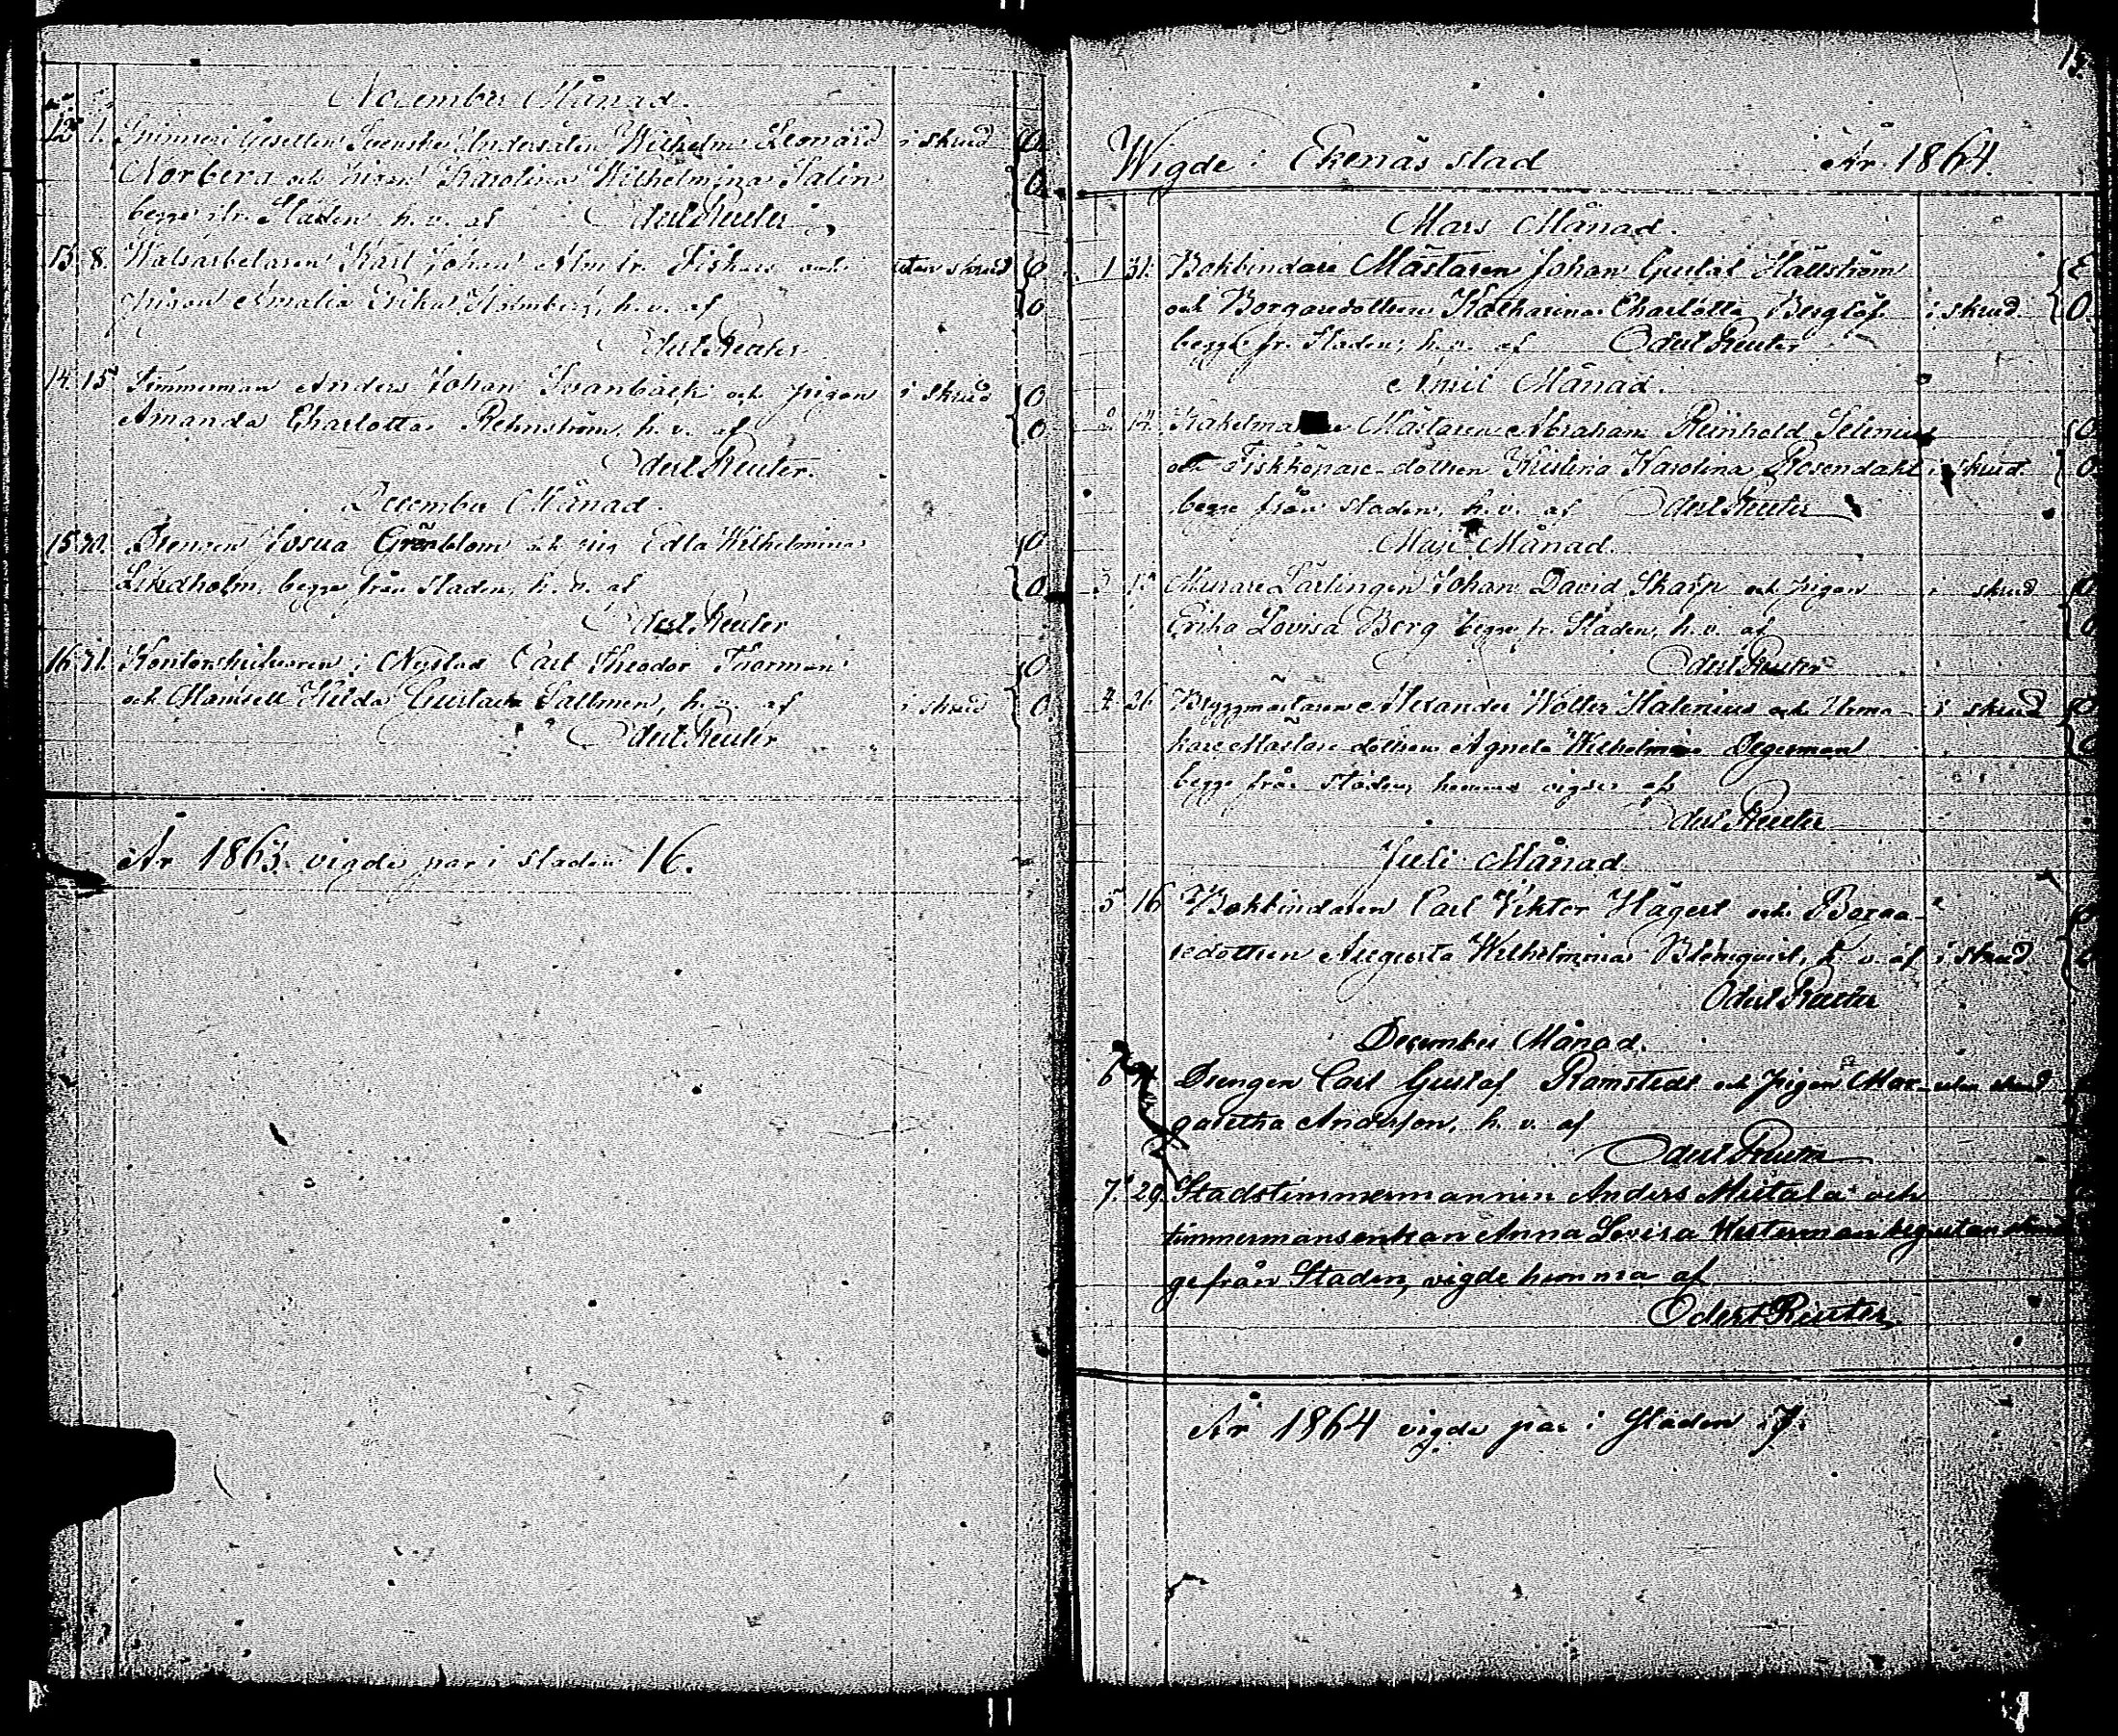 November Månad.
12. 1. Gesellen Svenske Undersåten Wilhelm Leonard i skrud 0
Norberg och Karolina Wilhelmina Salin 0
begge fr. Staden h. v. af Odert Reuter
13. 8. Walsarbetaren Karl Johan Alm fr. Fiskars och utan skrud 0
pigan Amalia Erika Holmberg, h. v. af 0
Odert Reuter
14. 15 Timmerman Anders Johan Svanbäck och pigan i skrud 0
Amanda Charlotta Rehnström, h. v. af 0
Odert Reuter.
December Månad.
15. 30. Drengen Josua Grönblom och pig Edla Wilhelmina 0
Lindholm, begge från staden, h. v. af 0
Odert Reuter
16. 31. Kontorsskrifvaren i Nystad Carl Theodor Thorman 0
och Mamsell Hilda Gustava Sallmen, h. v. af i skrud 0.
Odert Reuter
År 1863 vigde par i staden 16.
Wigde i Ekenäs stad År 1864.
Mars Månad.
1 31. Bokbindare Mästaren Johan Gustaf Hällström E
och Borgaredottren Katharina Charlotta Berglöf i skrud 0.
begge fr. Staden, h. v. af Odert Reuter
April Månad.
2 14. Mästaren Abraham Reinhold Selenius 0
och Fiskköpare-dottren Kristina Karolina Rosendahl i skrud 0
begge från staden, h. v. af Odert Reuter
Maji Månad.
3 Murare Lärlingen Johan David Skarp och pigan i skrud 0
Erika Lovisa Borg begge fr. Staden, h. v. af 0
Odert Reuter
4. 26 Byggmästaren Alexander Wolter Halenius och Urma- i skrud 0
kare Mästare dottren Agneta Wilhelmina Degerman
begge från staden, hemma vigde af
Odert Reuter
Juli Månad
5 16 Bokbindaren Carl Viktor Hägert och Borga-
redottren Augusta Wilhelmina Blomqvist, h. v. af i skrud
Odert Reuter
December Månad.
6 Drengen Carl Gustaf Ramstedt och pigan Mar- utan skrud
garetha Andersson, h. v. af
Odert Reuter
7. 29. Stadstimmermannen Anders Mietala och
timmermansenkan Anna Lovisa Westerman beg- utan skrud
ge från Staden, vigde hemma af
Odert Reuter
År 1864 vigde par i Staden 7.